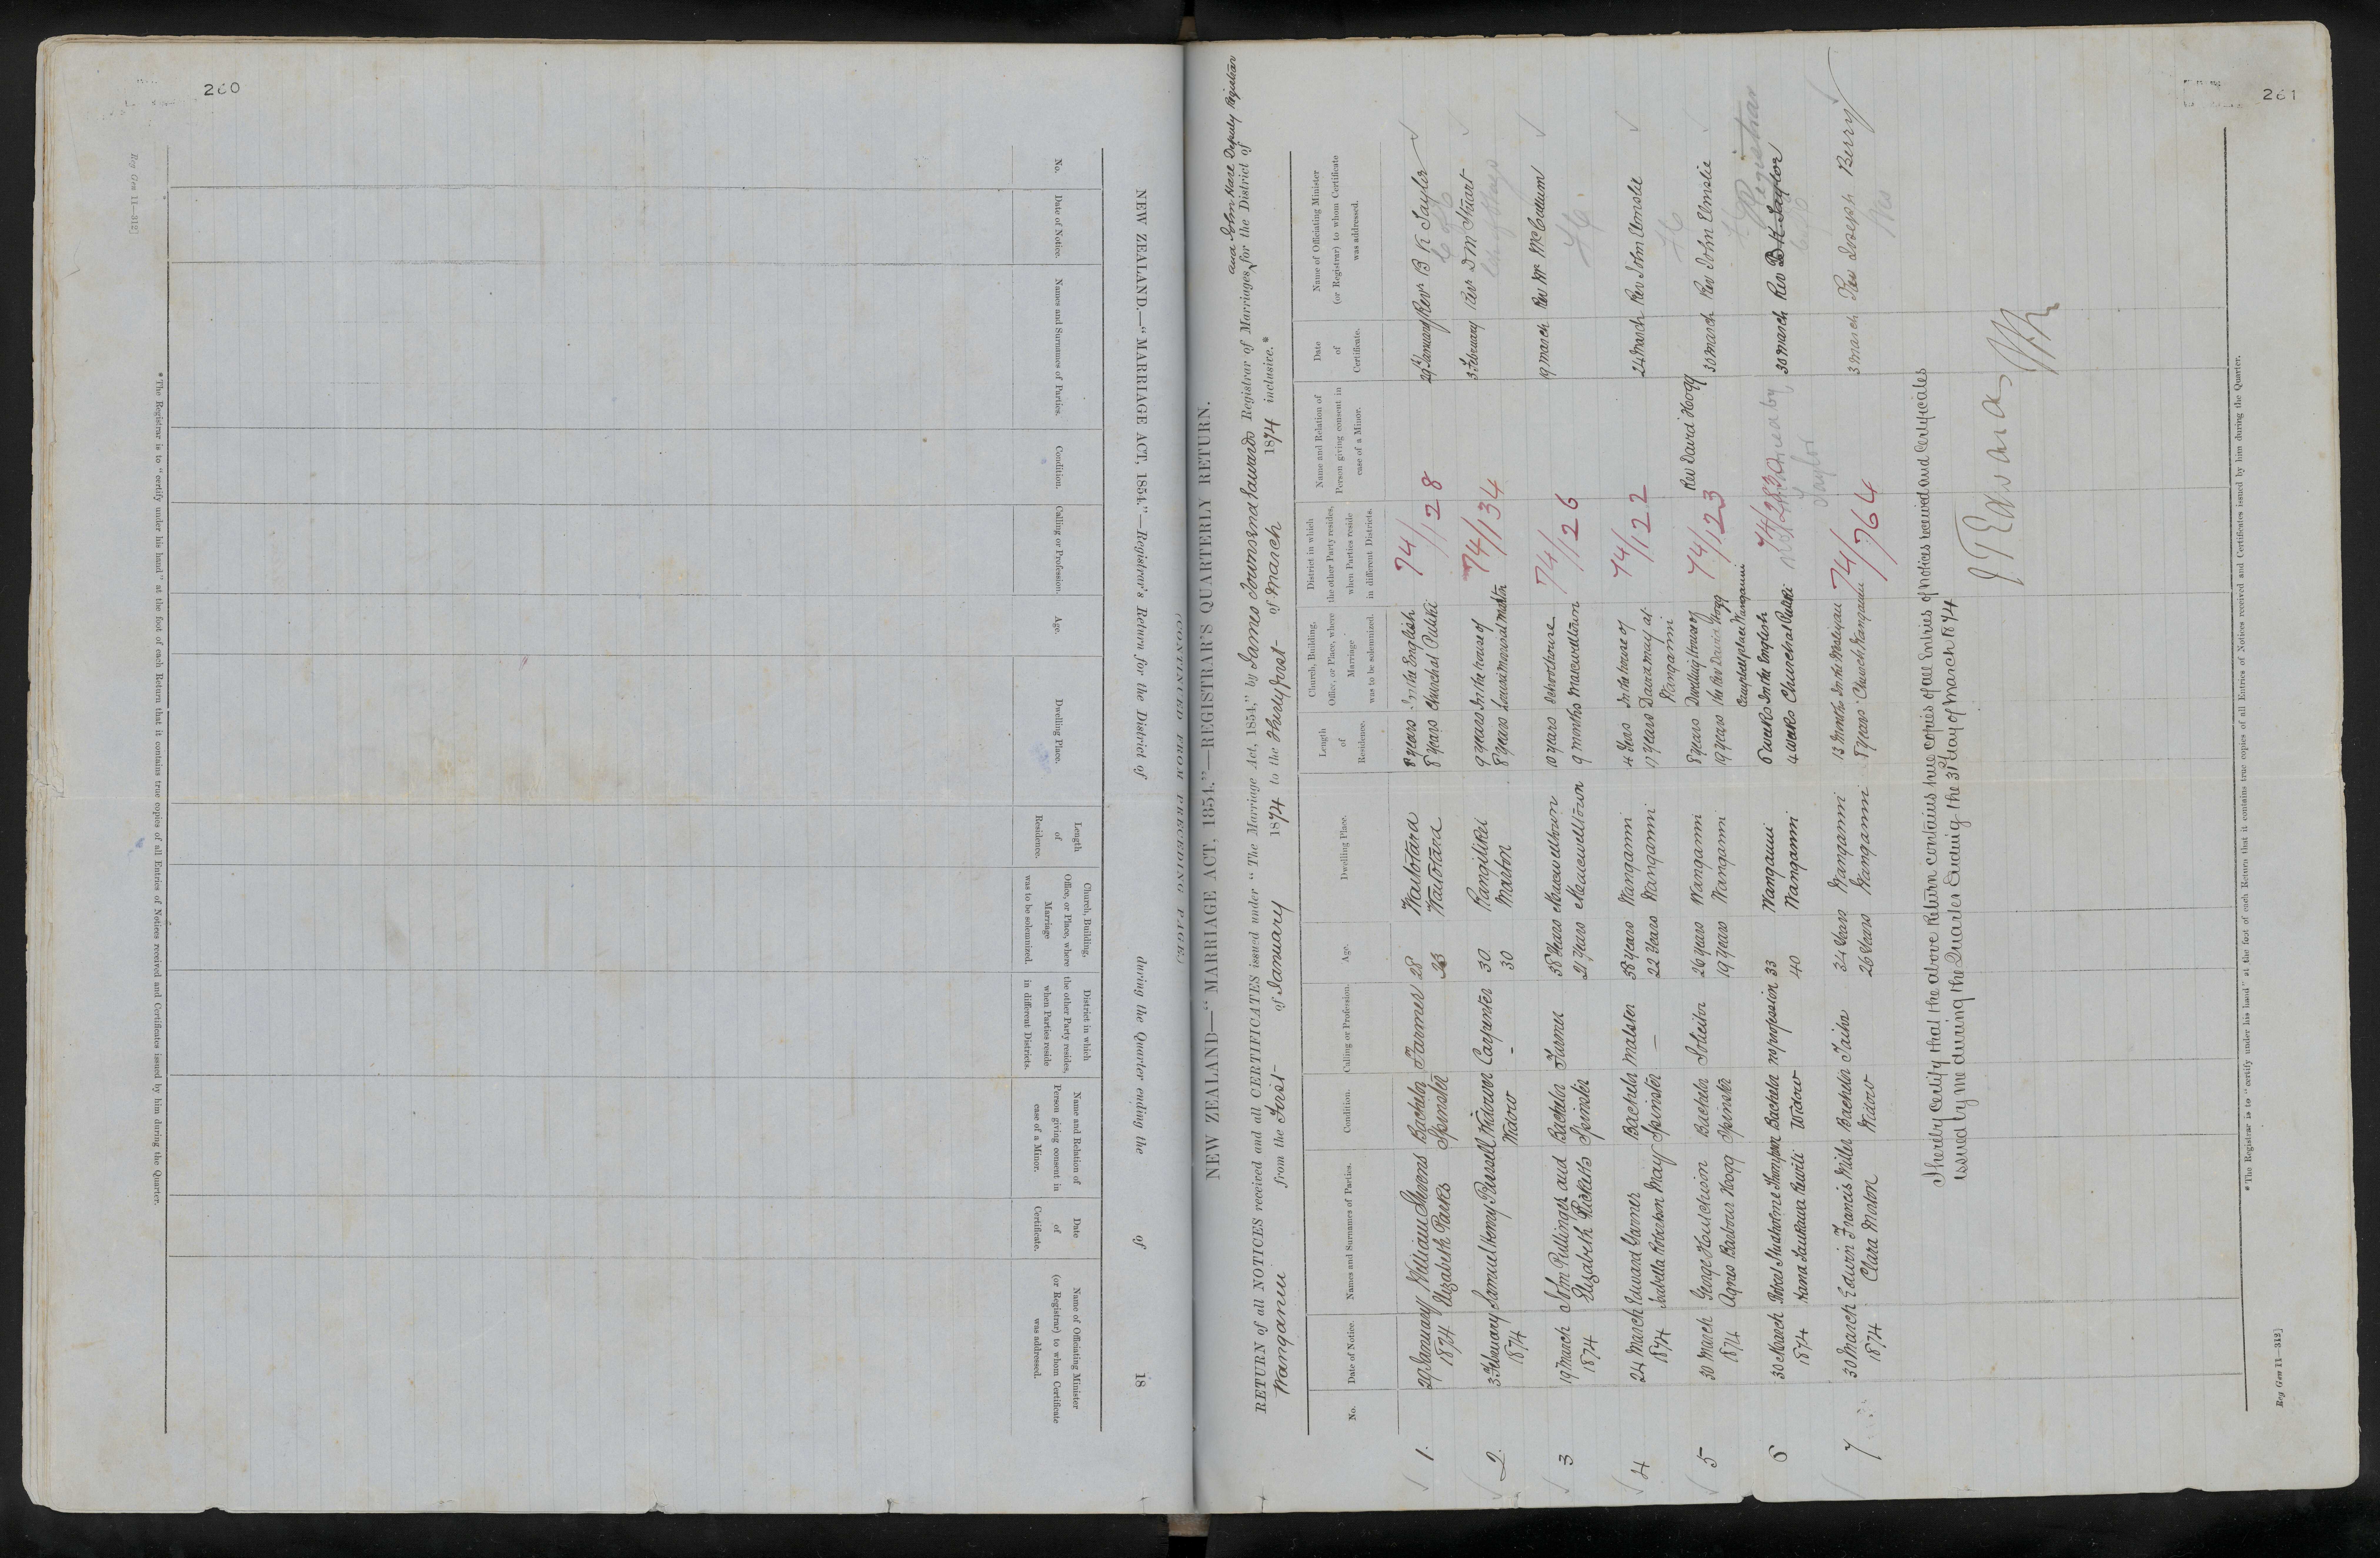 260
Reg Gen 11—312]
(CONTINUED FROM PRECEDING PAGE.)
NEW ZEALAND.—"MARRIAGE ACT, 1854."—Registrar's Return for the District of during the Quarter ending the of 18
No.
Date of Notice.
Names and Surnames of Parties.
Condition.
Calling or Profession.
Age.
Dwelling Place.
Length of Residence.
Church, Building, Office, or Place, where Marriage was to be solemnized.
District in which the other Party resides, when Parties reside in different Districts.
Name and Relation of Person giving consent in case of a Minor.
Date of Certificate.
Name of Officiating Minister (or Registrar) to whom Certificate was addressed.
* The Registrar is to "certify under his hand" at the foot of each Return that it contains true copies of all Entries of Notices received and Certificates issued by him during the Quarter.
261
NEW ZEALAND—"MARRIAGE ACT, 1854."—REGISTRAR'S QUARTERLY RETURN.
and John Hare Deputy Registrar
RETURN of all NOTICES received and all CERTIFICATES issued under "The Marriage Act, 1854," by James Townsend Edwards Registrar of Marriages, for the District of
Wanganui from the First of January 1874 to the thirty first of March 1874 inclusive.*
No.
Date of Notice.
Names and Surnames of Parties.
Condition.
Calling or Profession.
Age.
Dwelling Place.
Length of Residence.
Church, Building, Office, or Place, where Marriage was to be solemnized.
District in which the other Party resides, when Parties reside in different Districts.
Name and Relation of Person giving consent in case of a Minor.
Date of Certificate.
Name of Officiating Minister (or Registrar) to whom Certificate was addressed.
1. 29 January William Stevens Bachelor Farmer 28 Waitotara 8 years In the English 74/128 29 January Rev. B K Taylor
1874 Elizabeth Parkes Spinster 23 Waitotara 8 years Church at Putiki
2. 3 February Samuel Henry Russell Widower Carpenter 30 Rangitikei 9 years In the house of 74/134 3 February Rev D M Stuart
1874 Widow - 30 Marton 8 years
3 19 March John Pullinger and Bachelor Farmer 38 Years Maxwelltown 10 years Schoolhouse 74/126 19 March Rev Mr McCallum
1874 Elizabeth Ricketts Spinster 21 years Maxwelltown 9 months Maxwelltown
4 24 March Edward Garner Bachelor Malster 38 years Wanganui 4 Years In the house of 74/122 24 March Rev John Elmslie
1874 Isabella Robertson May Spinster — 22 Years Wanganui 17 years May at
Wanganui
5 30 March George Hutchison Bachelor Solicitor 26 years Wanganui 8 years Dwelling house of 74/123 Rev David Hogg 30 March Rev John Elmslie
1874 Agnes Barbour Hogg Spinster 19 years Wanganui 19 years the Rev David Hogg
Campbell place Wanganui
6 30 March Studholme Thompson Bachelor no profession 33 Wanganui 6 weeks In the English 30 March Rev B K Taylor
1874 Widow 40 Wanganui 4 weeks Church at Putiki
Registrar
by
Taylor
7 30 March Edwin Francis Miller Bachelor Tailor 34 Years Wanganui 13 Months In the Wesleyan 74/764 3 March Rev Joseph Berry
1874 Clara Morton Widow 26 Years Wanganui 8 years Church Wanganui
I hereby certify that the above Return contains true copies of all Entries of Notices received and Certificates
issued by me during the Quarter Ending the 31st day of March 1874
J T Edwards
* The Registrar is to "certify under his hand" at the foot of each Return that it contains true copies of all Entries of Notices received and Certificates issued by him during the Quarter.
Reg Gen 11—312]